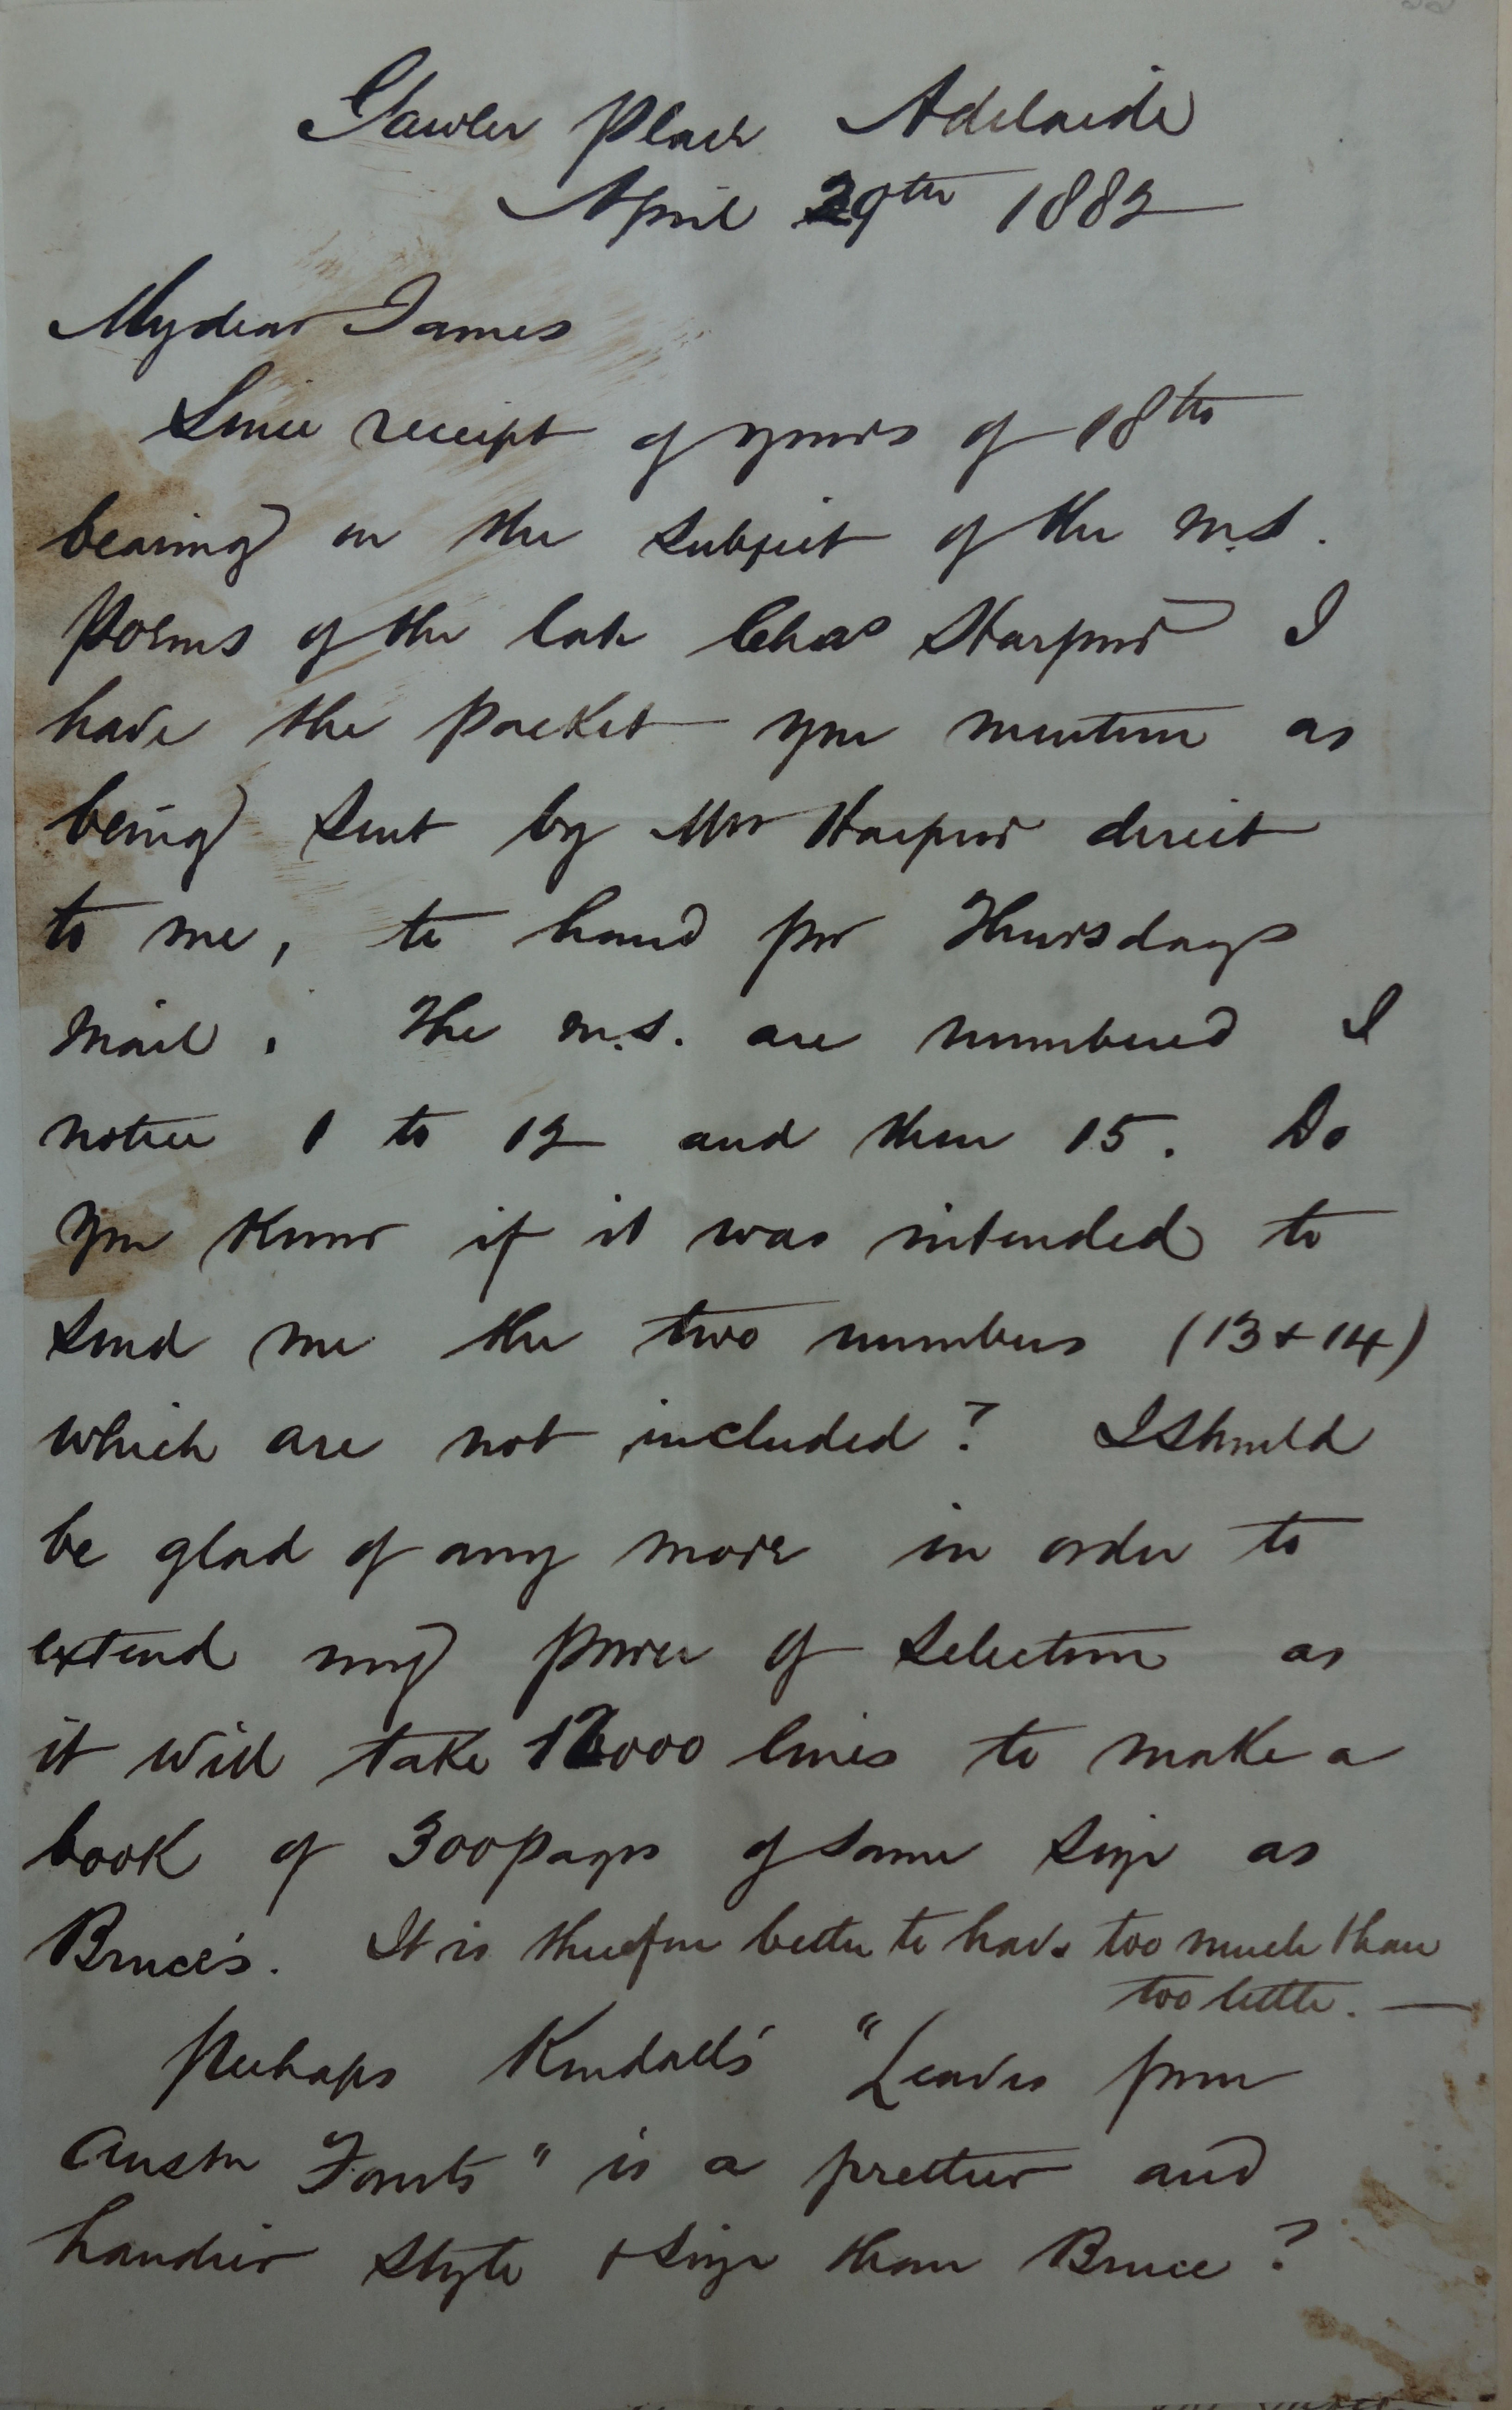 Gawler Place Adelaide
April 29th 1882
My dear James
Since receipt of yours of 18th
bearing on the subject of the m.s.
Poems of the late Chas Harpur I
have the packet you mention as
being sent by Mrs Harpur direct
to me, to hand pr Thursdays
mail. The m.s. are numbered I
notice 1 to 12 and then 15. Do
you know if it was intended to
send me the two numbers (13 + 14)
which are not included? I should
be glad of any more in order to
extend my power of selection as
it will take 12000 lines to make a
book of 300 pages of same size as
Bruce's. It is therefore better to have too much than
too little. —
Perhaps Kendall's "Leaves from
Austn Forests" is a prettier and
handier style + size than Bruce?